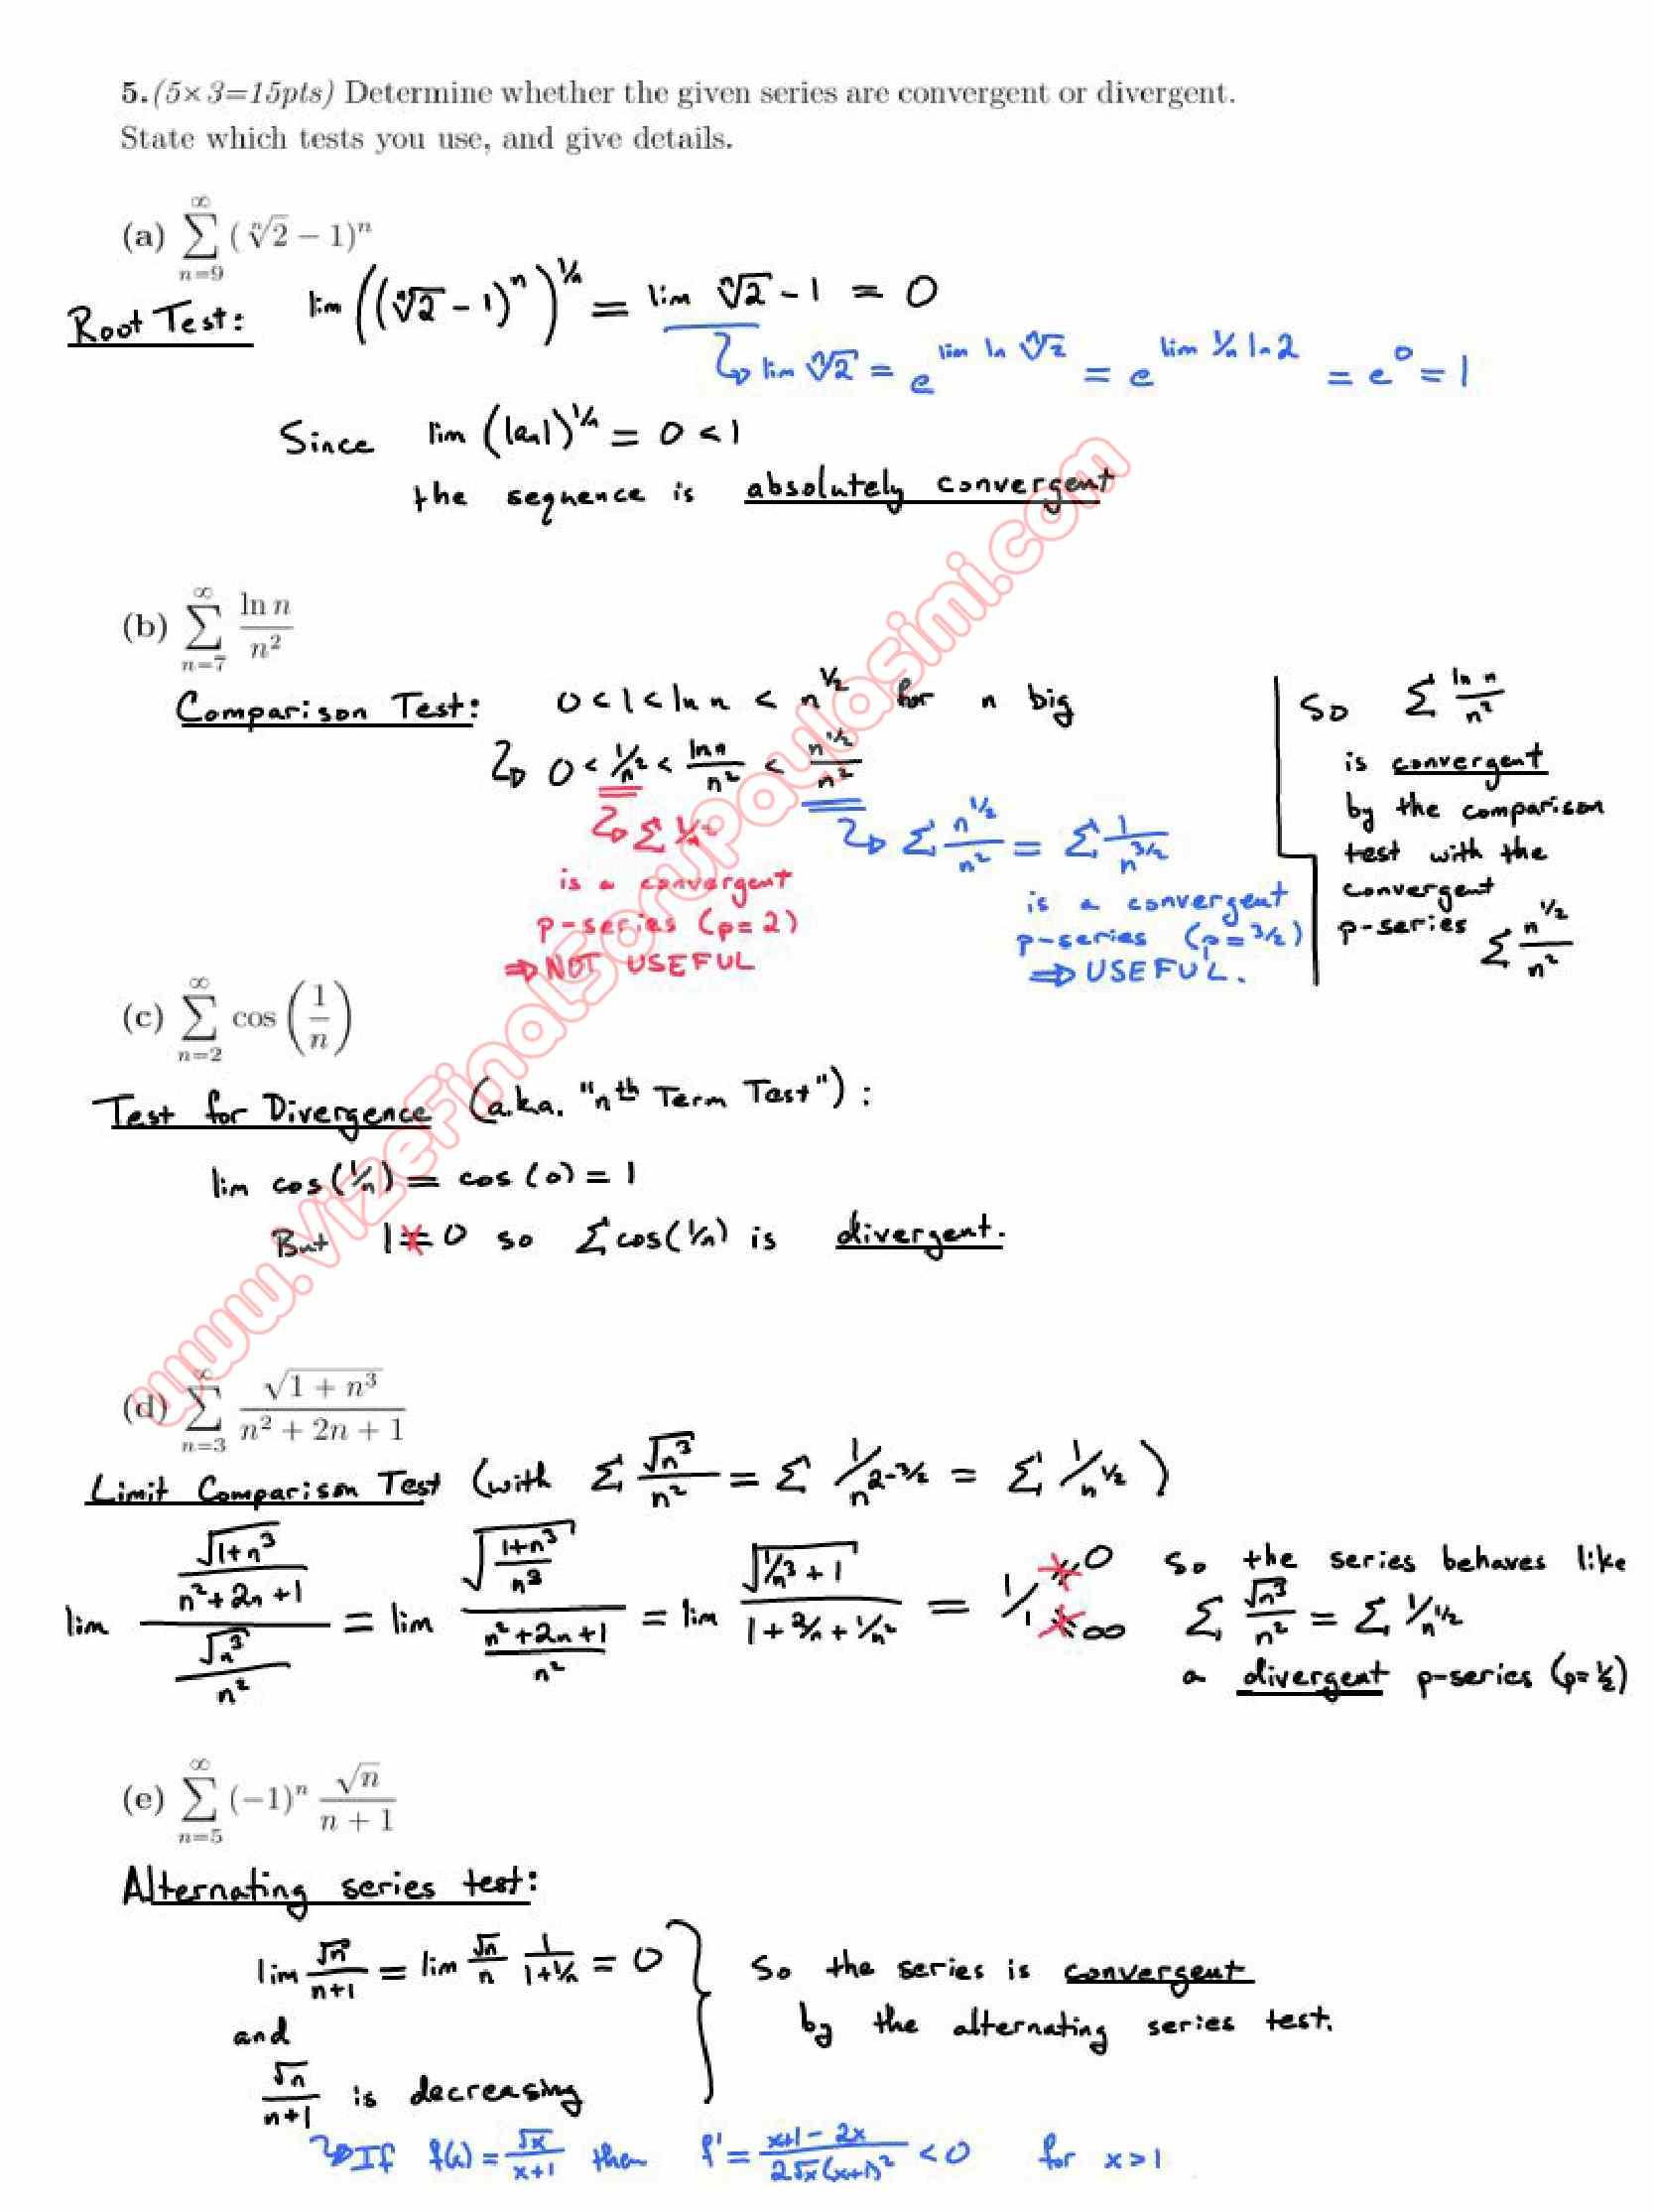 5.(5×3=15pts) Determine whether the given series are convergent or divergent.
State which tests you use, and give details.
(a) ∑_{n=9}^{∞} (ⁿ√2 − 1)ⁿ
Root Test: lim ((ⁿ√2 − 1)ⁿ)^{1/n} = lim ⁿ√2 − 1 = 0
↳ lim ⁿ√2 = e^{lim ln ⁿ√2} = e^{lim 1/n ln 2} = e⁰ = 1
Since lim (|aₙ|)^{1/n} = 0 < 1
the sequence is absolutely convergent
(b) ∑_{n=7}^{∞} ln n / n²
Comparison Test: 0 < 1 < ln n < n^{1/2} for n big
↳ 0 < 1/n² < ln n / n² < n^{1/2} / n²
↳ ∑ 1/n²
is a convergent
p-series (p=2)
⇒ NOT USEFUL
↳ ∑ n^{1/2} / n² = ∑ 1 / n^{3/2}
is a convergent
p-series (p=3/2)
⇒ USEFUL.
So ∑ ln n / n²
is convergent
by the comparison
test with the
convergent
p-series ∑ n^{1/2} / n²
(c) ∑_{n=2}^{∞} cos (1/n)
Test for Divergence (a.k.a. "nth Term Test"):
lim cos(1/n) = cos(0) = 1
But 1 ≠ 0 so ∑ cos(1/n) is divergent.
(d) ∑_{n=3}^{∞} √(1 + n³) / (n² + 2n + 1)
Limit Comparison Test (with ∑ √n³ / n² = ∑ 1/n^{2−3/2} = ∑ 1/n^{1/2})
lim (√(1+n³) / (n²+2n+1)) / (√n³ / n²) = lim √((1+n³)/n³) / ((n²+2n+1)/n²) = lim √(1/n³ + 1) / (1 + 2/n + 1/n²) = 1/1 ≠ 0 ≠ ∞
So the series behaves like
∑ √n³ / n² = ∑ 1/n^{1/2}
a divergent p-series (p=1/2)
(e) ∑_{n=5}^{∞} (−1)ⁿ √n / (n + 1)
Alternating series test:
lim √n / (n+1) = lim √n / n 1 / (1+1/n) = 0
and
√n / (n+1) is decreasing
So the series is convergent
by the alternating series test.
↳ If f(x) = √x / (x+1) then f' = (x+1−2x) / (2√x(x+1)²) < 0 for x>1
www.VizeFinalSoruPaylasimi.com